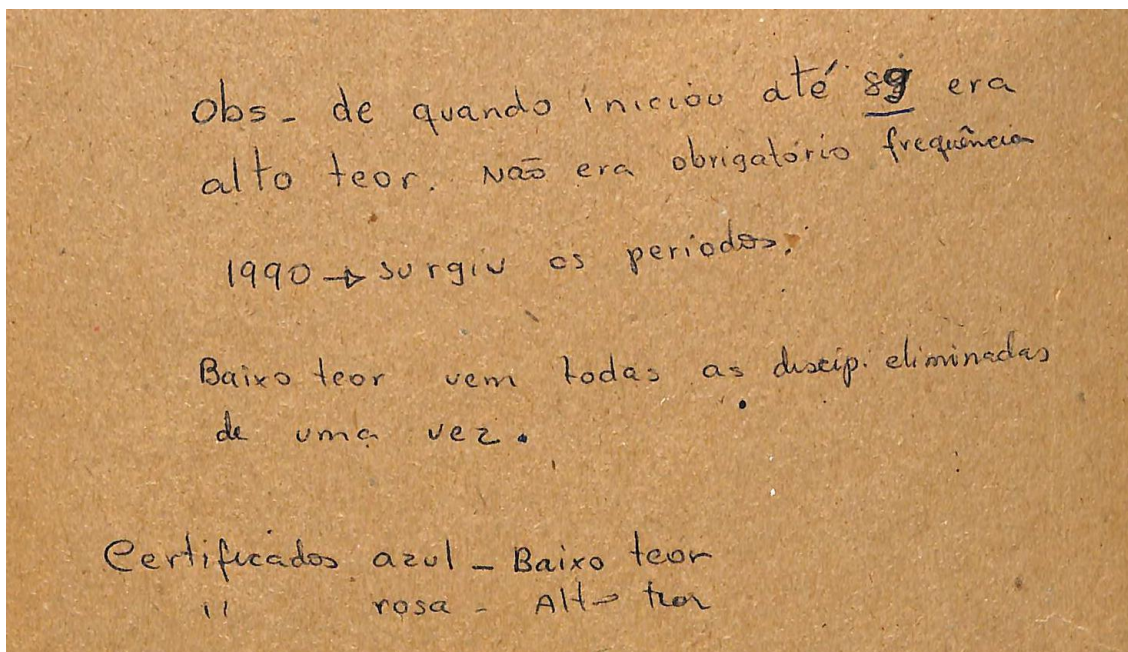 Obs - de quando iniciou até 89 era
alto teor. Não era obrigatório frequência
1990 → surgiu os periodos.
Baixo teor vem todas as discip. eliminadas
de uma vez.
Certificados azul - Baixo teor
" rosa - Alto teor